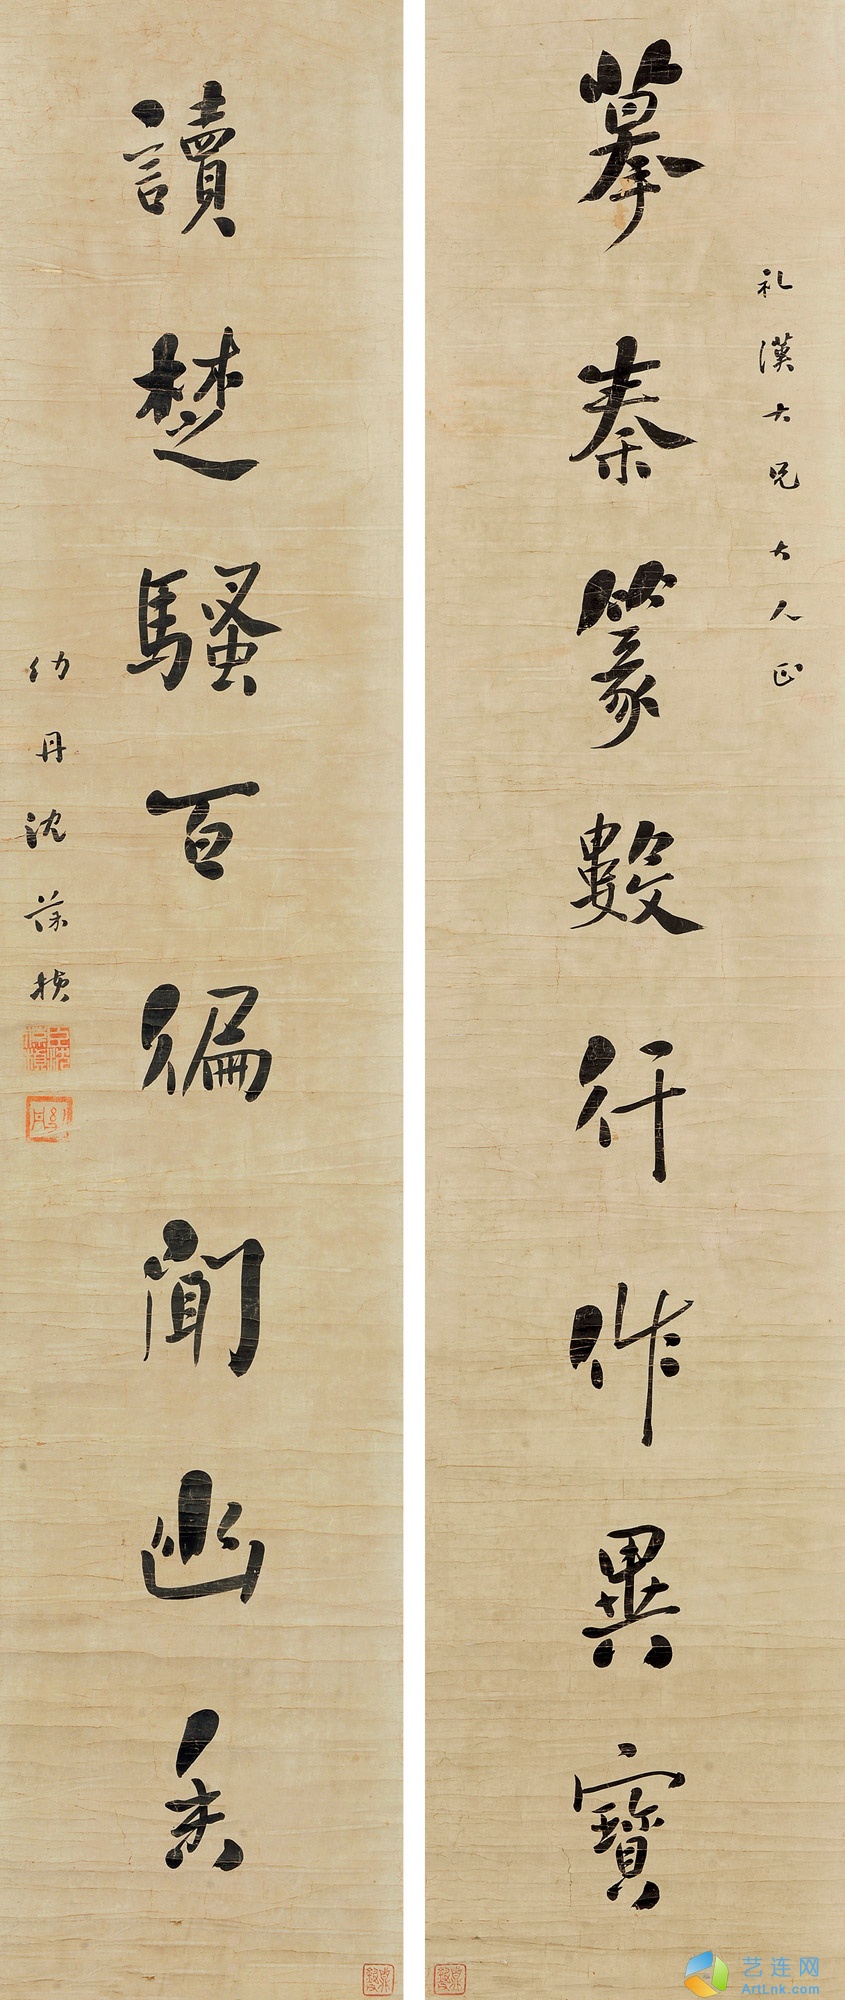 礼漢大兄大人正
摹秦篆數行作異寶
讀楚騷百徧聞幽香
幼丹沈葆楨
幼丹
艺连网
ArtLnk.com